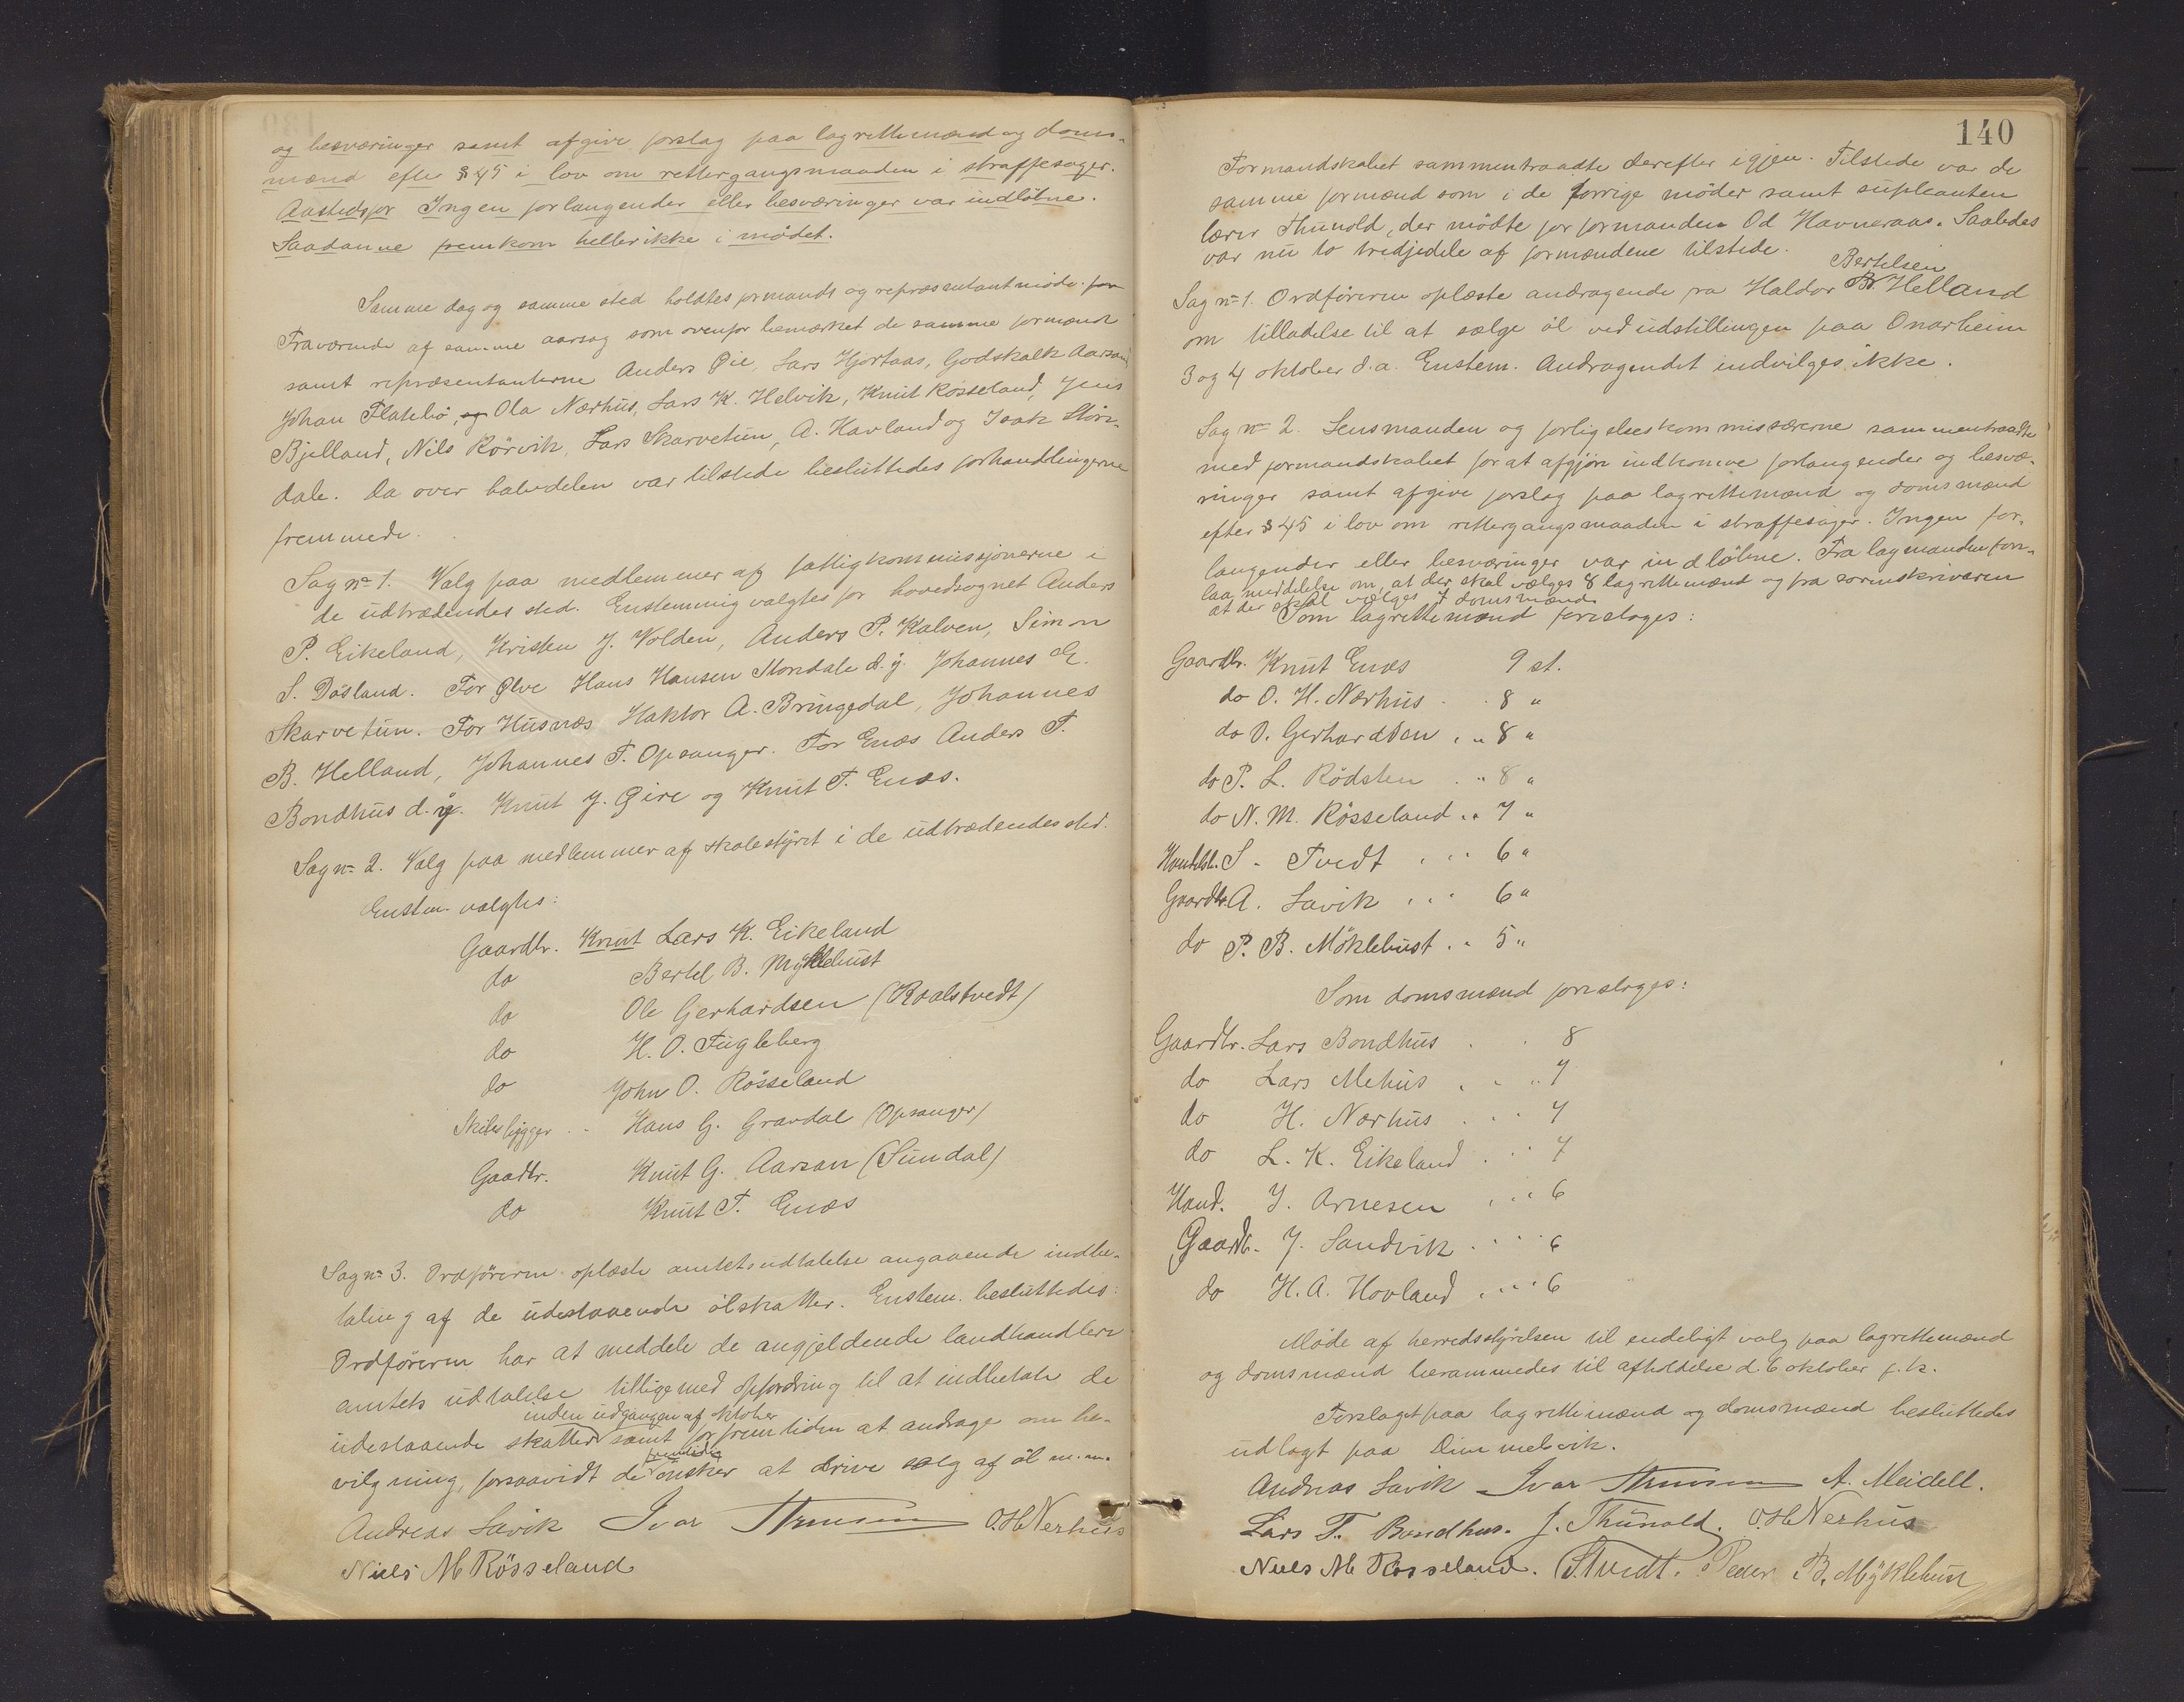 og besværinger samt afgive forslag paa lagrettemænd og doms-
mænd efter § 45 i lov om rettergangsmaaden i straffesager.
Aastedsfor Ingen forlangender eller besværinger var indløbne.
Saadanne fremkom heller ikke i mødet.
Samme dag og samme sted holdtes formands og repræsentantmøde.
Fraværende af samme aarsag som ovenfor bemærket de samme formænd
samt repræsentanterne Anders Øie, Lars Hjortaas, Godskalk Aarsan
Johan Flatebø, og Ola Nærhus, Lars K. Helvik, Knut Røsseland, Jens
Bjelland, Nils Rørvik, Lars Skarvetun, A. Havland og Isak Stor-
dale. Da over halvdelen var tilstede besluttedes forhandlingerne
fremmede.
Sag no 1. Valg paa medlemmer af fattigkommissjonerne i
de udtrædendes sted. Enstemmig valgtes for hovedsognet Anders
P. Eikeland, Kristen J. Volden, Anders P. Kalven, Simon
S. Døsland. For Ølve Hans Hansen Stordale d.y. Johannes E.
Skarvetun. For Husnæs Haktor A. Bringedal, Johannes
B. Helland, Johannes T. Opsanger. For Enæs Anders T.
Bondhus d.y. Knut J. Øire og Knut T. Enæs.
Sag no 2. Valg paa medlemmer af skolestyret i de udtrædendes sted.
Enstem. valgtes:
Gaardbr. Knut Lars K. Eikeland
do Bertel B. Myklebust
do Ole Gerhardsen (Roalstvedt)
do H. O. Fugleberg
do John O. Røsseland
Skibsbygger Hans G. Gravdal (Opsanger)
Gaadbr. Knut G. Aarsan (Sundal)
do Knut T. Enæs
Sag no 3. Ordføreren oplæste amtets udtalelse angaaende indbe-
taling af de udestaaende ølskatter. Enstem. besluttedes:
Ordføreren har at meddele de angjeldende landhandlere
amtets udtalelse tilligemed opfordring til at indbetale de
inden udgangen af oktober
udestaaende skatter samt for fremtiden at andrage om be-
fremtidig
vilgning, forsaavidt de ønsker at drive salg af øl m.m.
Andreas Savik Ivar O.H. Nerhus
Niels M Røsseland
140
Formandskabet sammentraadte derefter igjen. Tilstede var de
samme formænd som i de forrige møder samt supleanten
lærer Thunold, der mødte for formanden Od Havneraas. Saaledes
var nu to tredjedele af formændene tilstede.
Bertelsen
Sag no 1. Ordføreren oplæste andragende fra Haldor Br. Helland
om tilladelse til at sælge øl ved udstillingen paa Onarheim
3 og 4 oktober d.a. Enstem. Andragendet indvilges ikke.
Sag no 2. Lensmanden og forligelseskommissærerne sammentraadte
med formandskabet for at afgjøre indkomne forlangender og besvæ-
ringer samt afgive forslag paa lagrettemænd og domsmænd
efter § 45 i lov om rettergangsmaaden i straffesager. Ingen for-
langender eller besværinger var indløbne. Fra lagmanden fore-
laa meddelelse om, at der skal vælges 8 lagrettemænd og fra sorenskriveren
at der skal vælges 7 domsmænd.
Som lagrettemænd foresloges:
Gaardbr. Knut Enæs 9 st.
do O. H. Nærhus 8 "
do O. Gerhardsen 8 "
do P. L. Rødsten 8 "
do N. M. Røsseland 7 "
Handelsb. S. Tvedt 6 "
Gaardbr. A. Savik 6 "
do P. B. Møklebust 5 "
Som domsmænd foresloges:
Gaardbr. Lars Bondhus 8
do Lars Mehus 7
do H. Nærhus 7
do L. K. Eikeland 7
Hand. J. Arnesen 6
Gaardb. J. Sandvik 6
do H. A. Hovland 6
Møde af herredsstyrelsen til endeligt valg paa lagrettemænd
og domsmænd berammedes til afholdelse d. 6 oktober f. k.
Forslaget paa lagrettemænd og domsmænd besluttedes
udlagt paa Dimmelsvik.
Andreas Savik Ivar A. Meidell.
Lars T. Bondhus. J. Thunold. O.H. Nerhus
Niels M Røsseland. S. Tvedt. Peder B. Myklebust